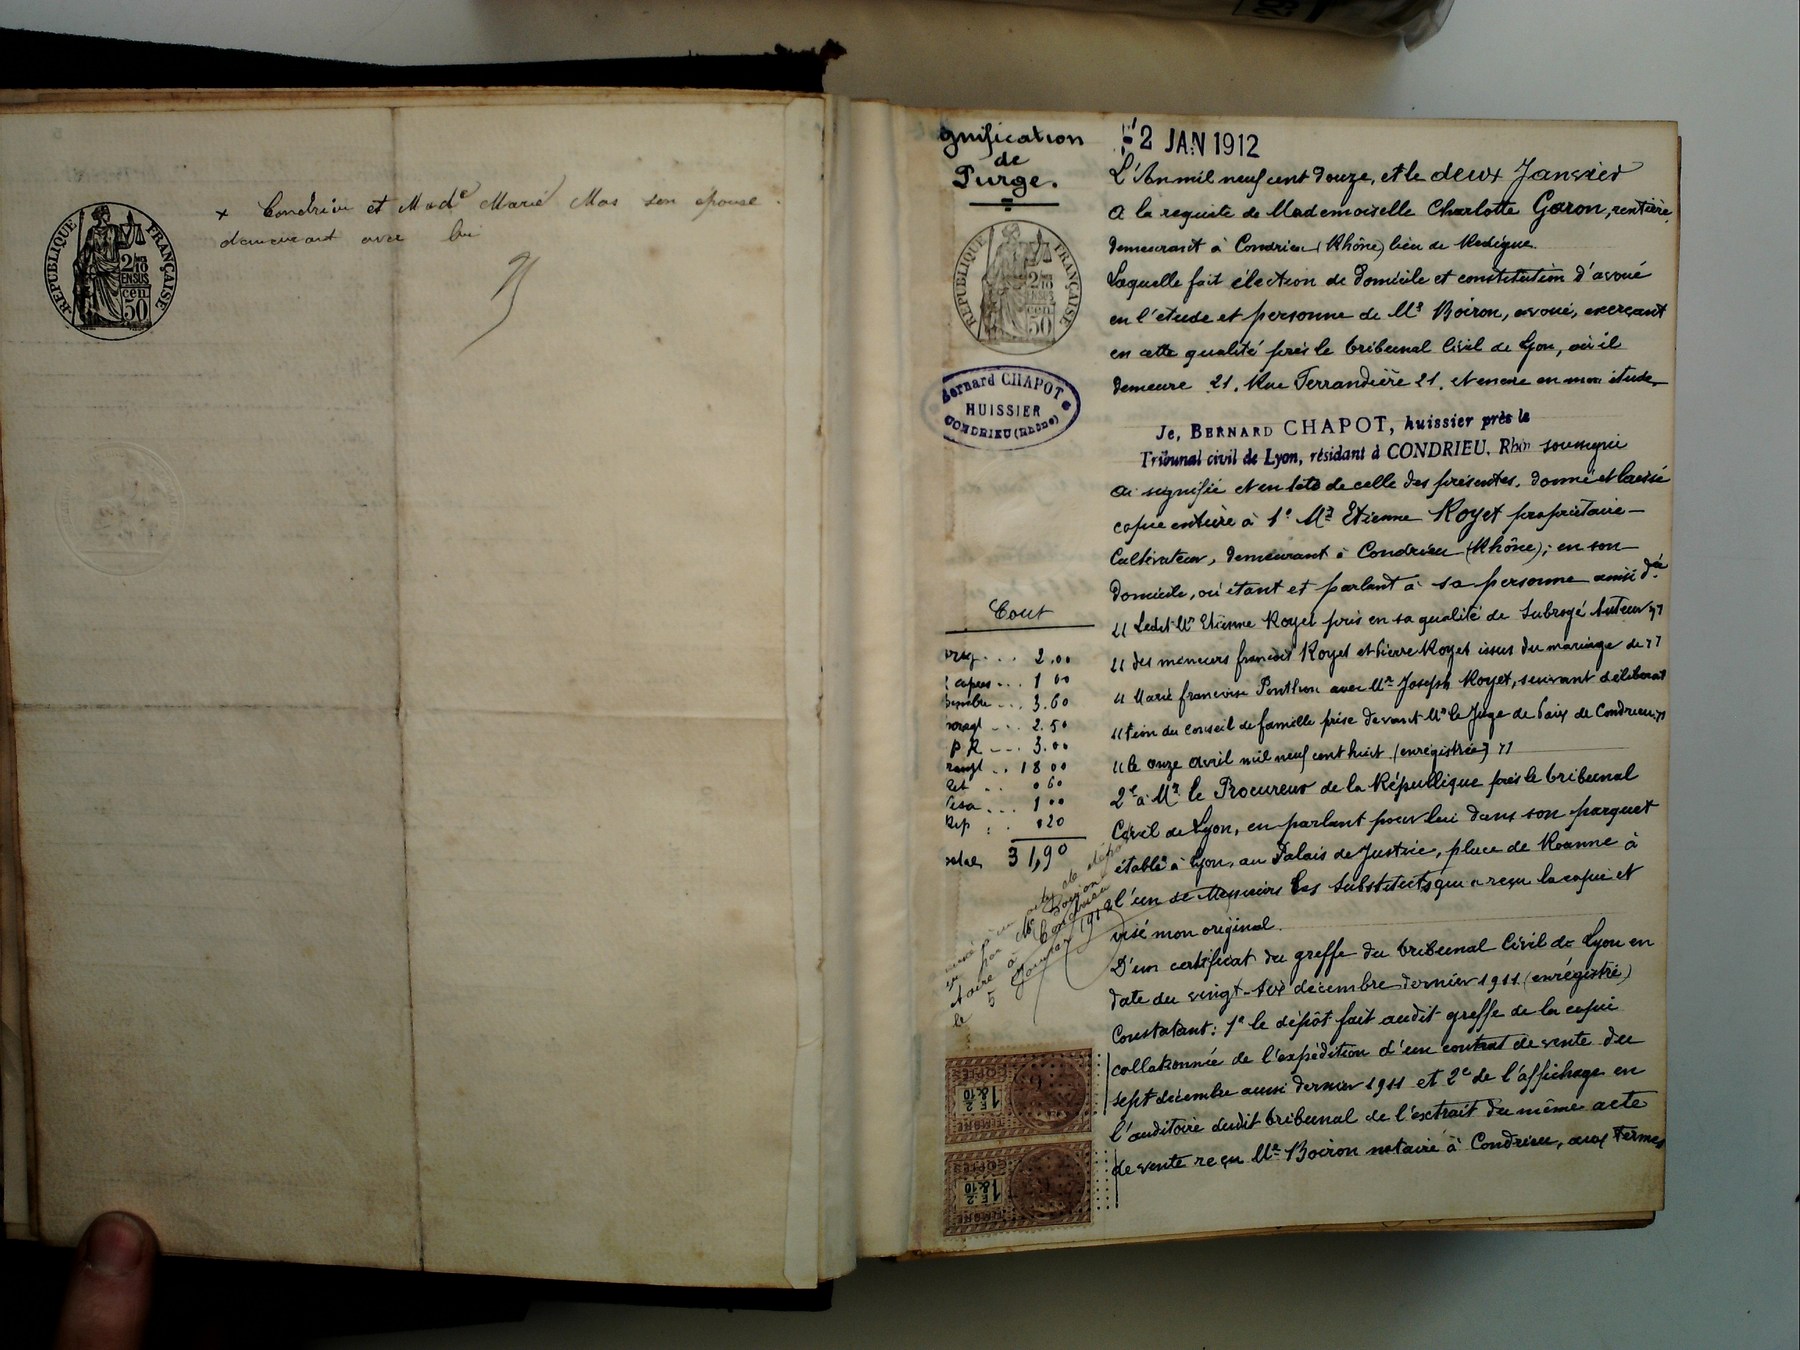 x Condrieu et Made Marie Mas son épouse
demeurant avec lui
RÉPUBLIQUE FRANÇAISE
2/10 EN SUS
cen 50
gnification
de
Purge.
RÉPUBLIQUE FRANÇAISE
2/10 EN SUS
cen 50
Bernard CHAPOT
HUISSIER
CONDRIEU (Rhône)
Cout
2.00
copies 1 00
3.60
2.50
P.R 3.00
18 00
0 60
Visa 1 00
Rep 0 20
31,90
à Condrieu
le 5 Janvier 1912
2 JAN 1912
L'An mil neuf cent douze, et le deux Janvier
A la requête de Mademoiselle Charlotte Garon, rentière,
demeurant à Condrieu (Rhône) lieu de
Laquelle fait élection de domicile et constitution d'avoué
en l'étude et personne de Me Boiron, avoué, exerçant
en cette qualité près le tribunal Civil de Lyon, où il
demeure 21, Rue Ferrandière 21, et encore en mon étude
Je, BERNARD CHAPOT, huissier près le
Tribunal civil de Lyon, résidant à CONDRIEU, Rhôn soussigné
Ai signifié et en tête de celle des présentes, donné et laissé
copie entière à 1° Mr Etienne Royet propriétaire
Cultivateur, demeurant à Condrieu (Rhône); en son
domicile, où étant et parlant à sa personne ainsi dé.
" Ledit Mr Etienne Royet pris en sa qualité de Subrogé tuteur "
" des mineurs francois Royet et Pierre Royet issus du mariage de "
" Marie francoise Ponthon avec Mr Joseph Royet, suivant délibéra
" tion du conseil de famille prise devant Mr le Juge de Paix de Condrieu "
" le onze avril mil neuf cent huit (enregistrée) "
2° à Mr le Procureur de la République près le tribunal
Civil de Lyon, en parlant pour lui dans son parquet
établi à Lyon, au Palais de Justice, place de Roanne à
l'un de Messieurs les Substituts qui a reçu la copie et
visé mon original.
D'un certificat du greffe du tribunal Civil de Lyon en
date du vingt-six décembre dernier 1911 (enrégistré)
Constatant: 1° le dépôt fait audit greffe de la copie
collationnée de l'expédition d'un contrat de vente du
sept décembre aussi dernier 1911 et 2° de l'affichage en
l'auditoire dudit tribunal de l'extrait du même acte
de vente reçu Me Boiron notaire à Condrieu, aux termes
COPIES
TIMBRE
COPIES
TIMBRE